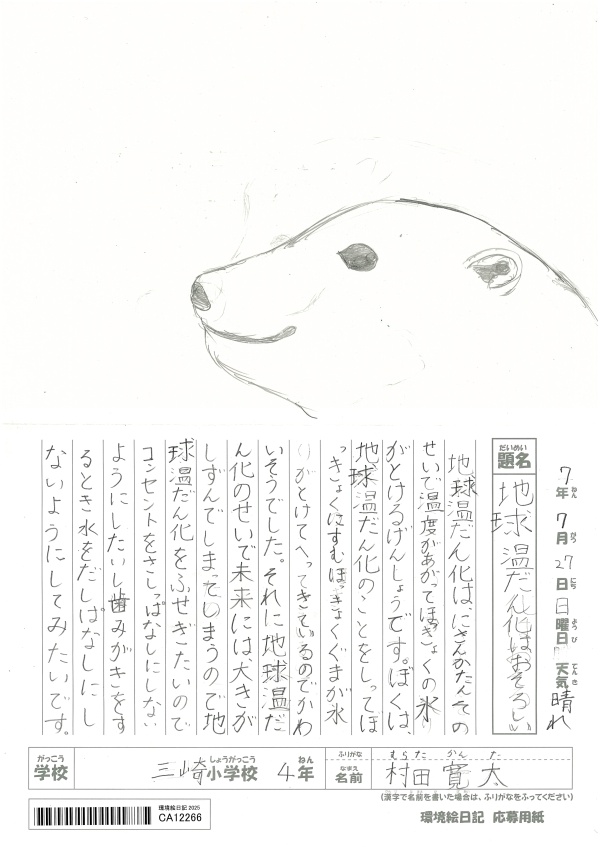 7年 7月 27日 日曜日 天気 晴れ
ねん がつ にち ようび てんき
だいめい
題名 地球温だん化はおそろしい
地球温だん化は、にさんかたんその
せいで温度があがってほっきょくの氷
がとけるげんしょうです。ぼくは、
地球温だん化のことをしってほ
っきょくにすむほっきょくぐまが氷
がとけてへってきているのでかわ
いそうでした。それに地球温だ
ん化のせいで未来には大きが
しずんでしまってしまうので地
球温だん化をふせぎたいので
コンセントをさしっぱなしにしない
ようにしたいし歯みがきをす
るとき水をだしぱなしにし
ないようにしてみたいです。
がっこう
学校 三崎小学校 4年
しょうがっこう ねん
ふりがな むらた かんた
なまえ
名前 村田 寛太
(漢字で名前を書いた場合は、ふりがなをふってください)
環境絵日記 2025
CA12266
環境絵日記 応募用紙